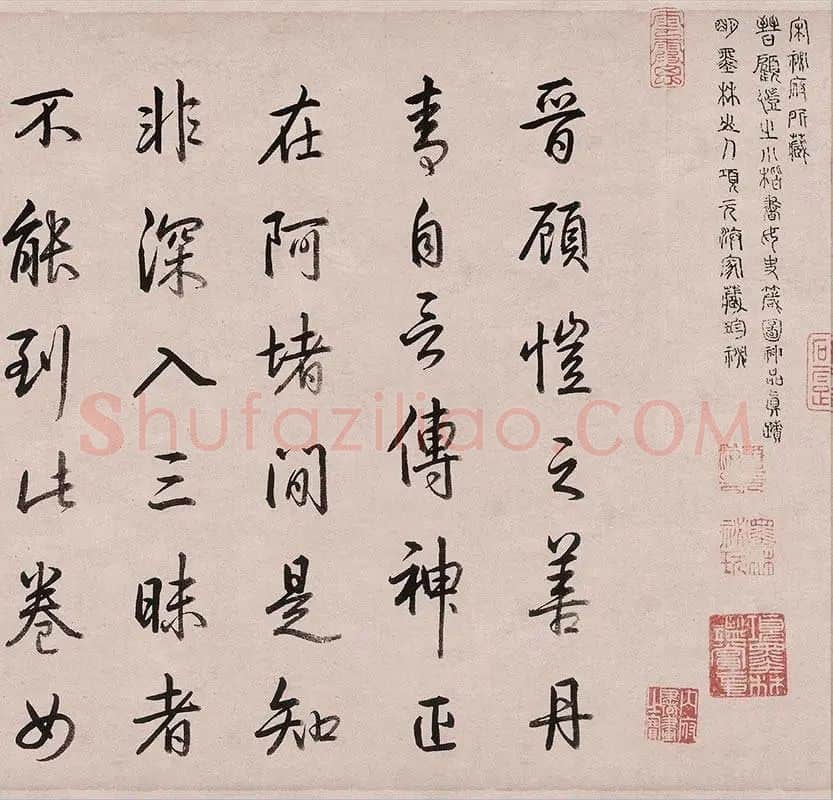 宋秘府所藏
晉顧愷之小楷書女史箴圖神品真蹟
明墨林山人項元汴家藏珍秘
晉顧愷之善丹
青自言傳神正
在阿堵間是知
非深入三昧者
不能到此卷女
Shufaziliao.COM